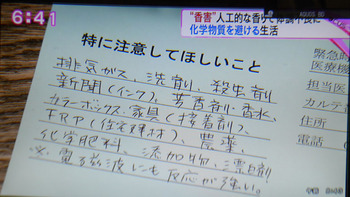 6:41
"香害"人工的な香りで体調不良に
化学物質を避ける生活
特に注意してほしいこと
排気ガス、洗剤、殺虫剤
新聞(インク)、芳香剤・香水、
カラーボックス・家具(接着剤)、
FRP(住宅建材)、農薬、
化学肥料、添加物、漂白剤
※電磁波にも反応が強い。
緊急時
医療機
担当医
カルテ
住所
電話
午前 6:43